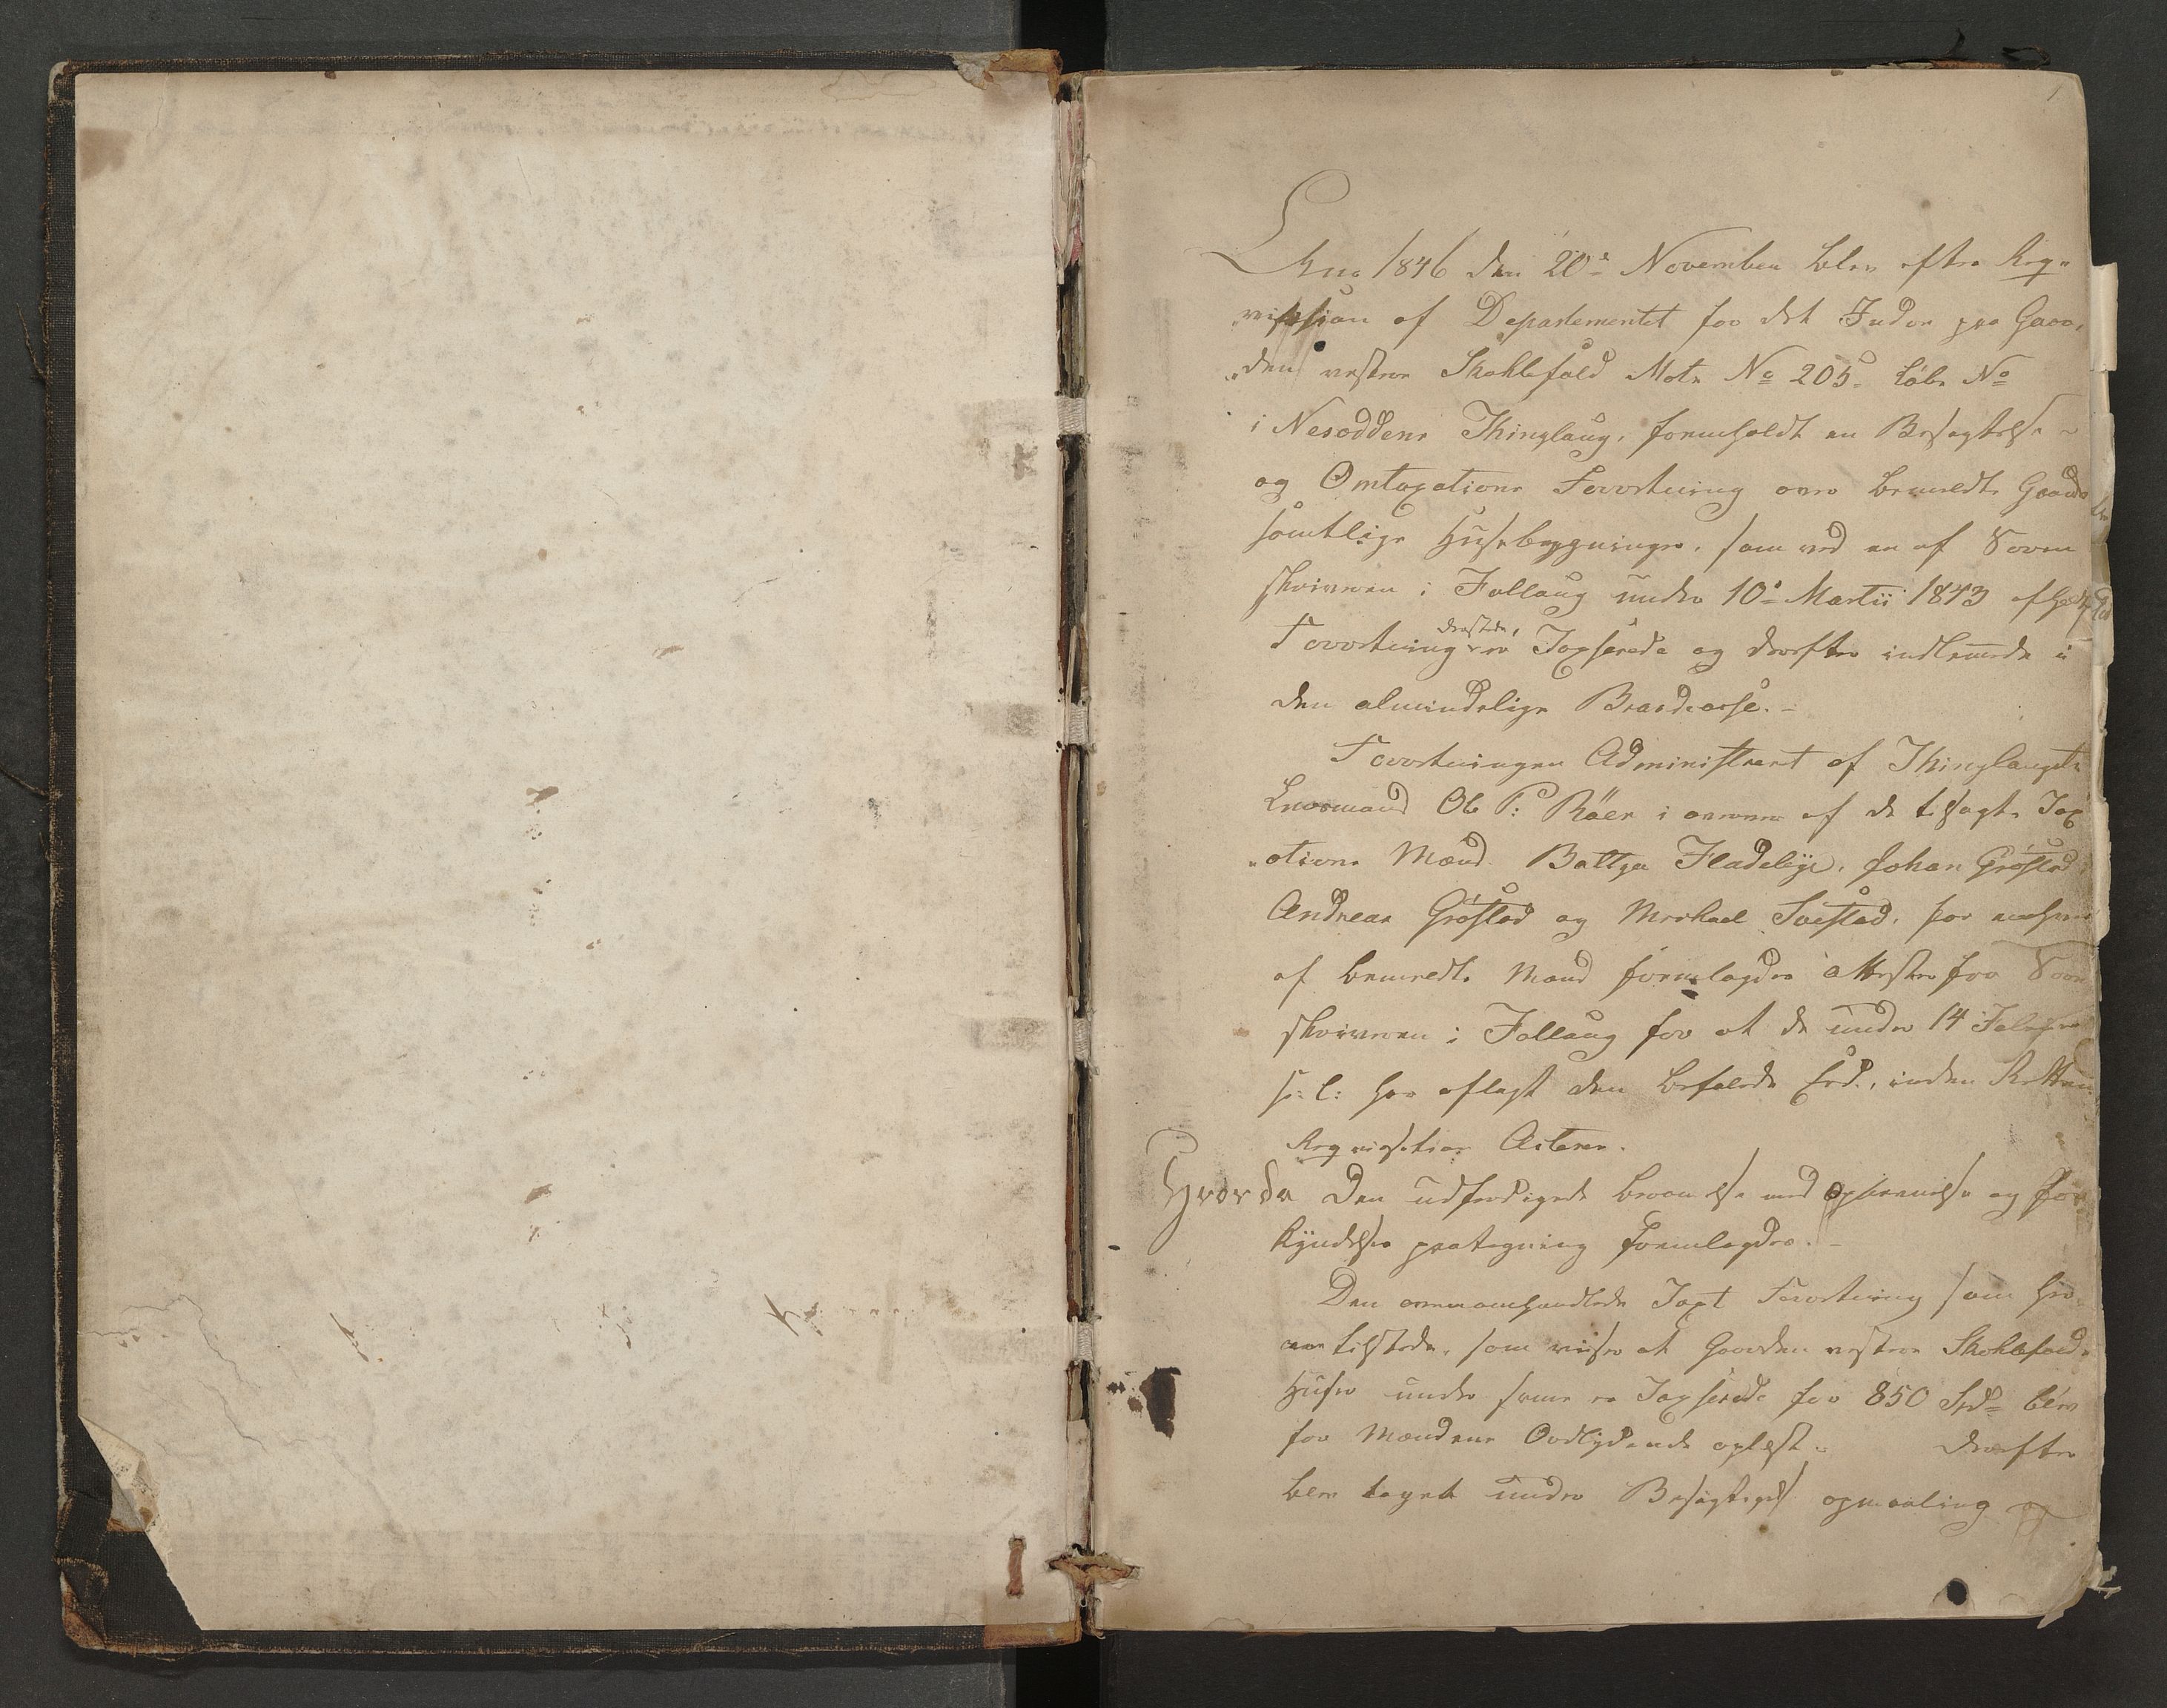 1
Anno 1846 den 20de November blev efter Req„
„vission af Departementet for det Indre paa Gaar„
„den vestre Skoklefald Matr No 205. Løbe No
i Nesoddens Thinglaug, foreholdt en Besigtelse
og Omtaxations Forretning over bemeldte Gaards
samtlige Huusebygninger, som ved en af Soren
skriveren i Follaug under 10de Martii 1843 afholdt
Forretning derstæder, er Taxserede og derefter indlemede i
den almindelige Brandcasse. –
Forretningen Administreret af Thinglaugets
Lensmand Ole P: Röer i overvær af de tilsagte Tax
„ations Mænd. Battga Fladebye, Johan Gröstad
Andreas Gröstad og Michael Svestad, for
af bemeldte Mænd foremlagdes Attester fra Soren
skriveren i Follaug for at de under 14 Februar
s: l: har aflagt den befalede Eed, inden Retten
Reqvisition Acteren.
Hvorda Den udferdigede berammelse med opnevnelse og for
kyndelses paategning fremlagdes. –
Den ovenomhandlede Taxt Forretning som her
var tilstede, som viiser at Gaarden vestre Skoklefald„
Huuse under samme er Taxserede for 850 Spd blev
for Mændene Ordlydende oplæst. Derefter
blev taget under Besigtigelse opmaaling og